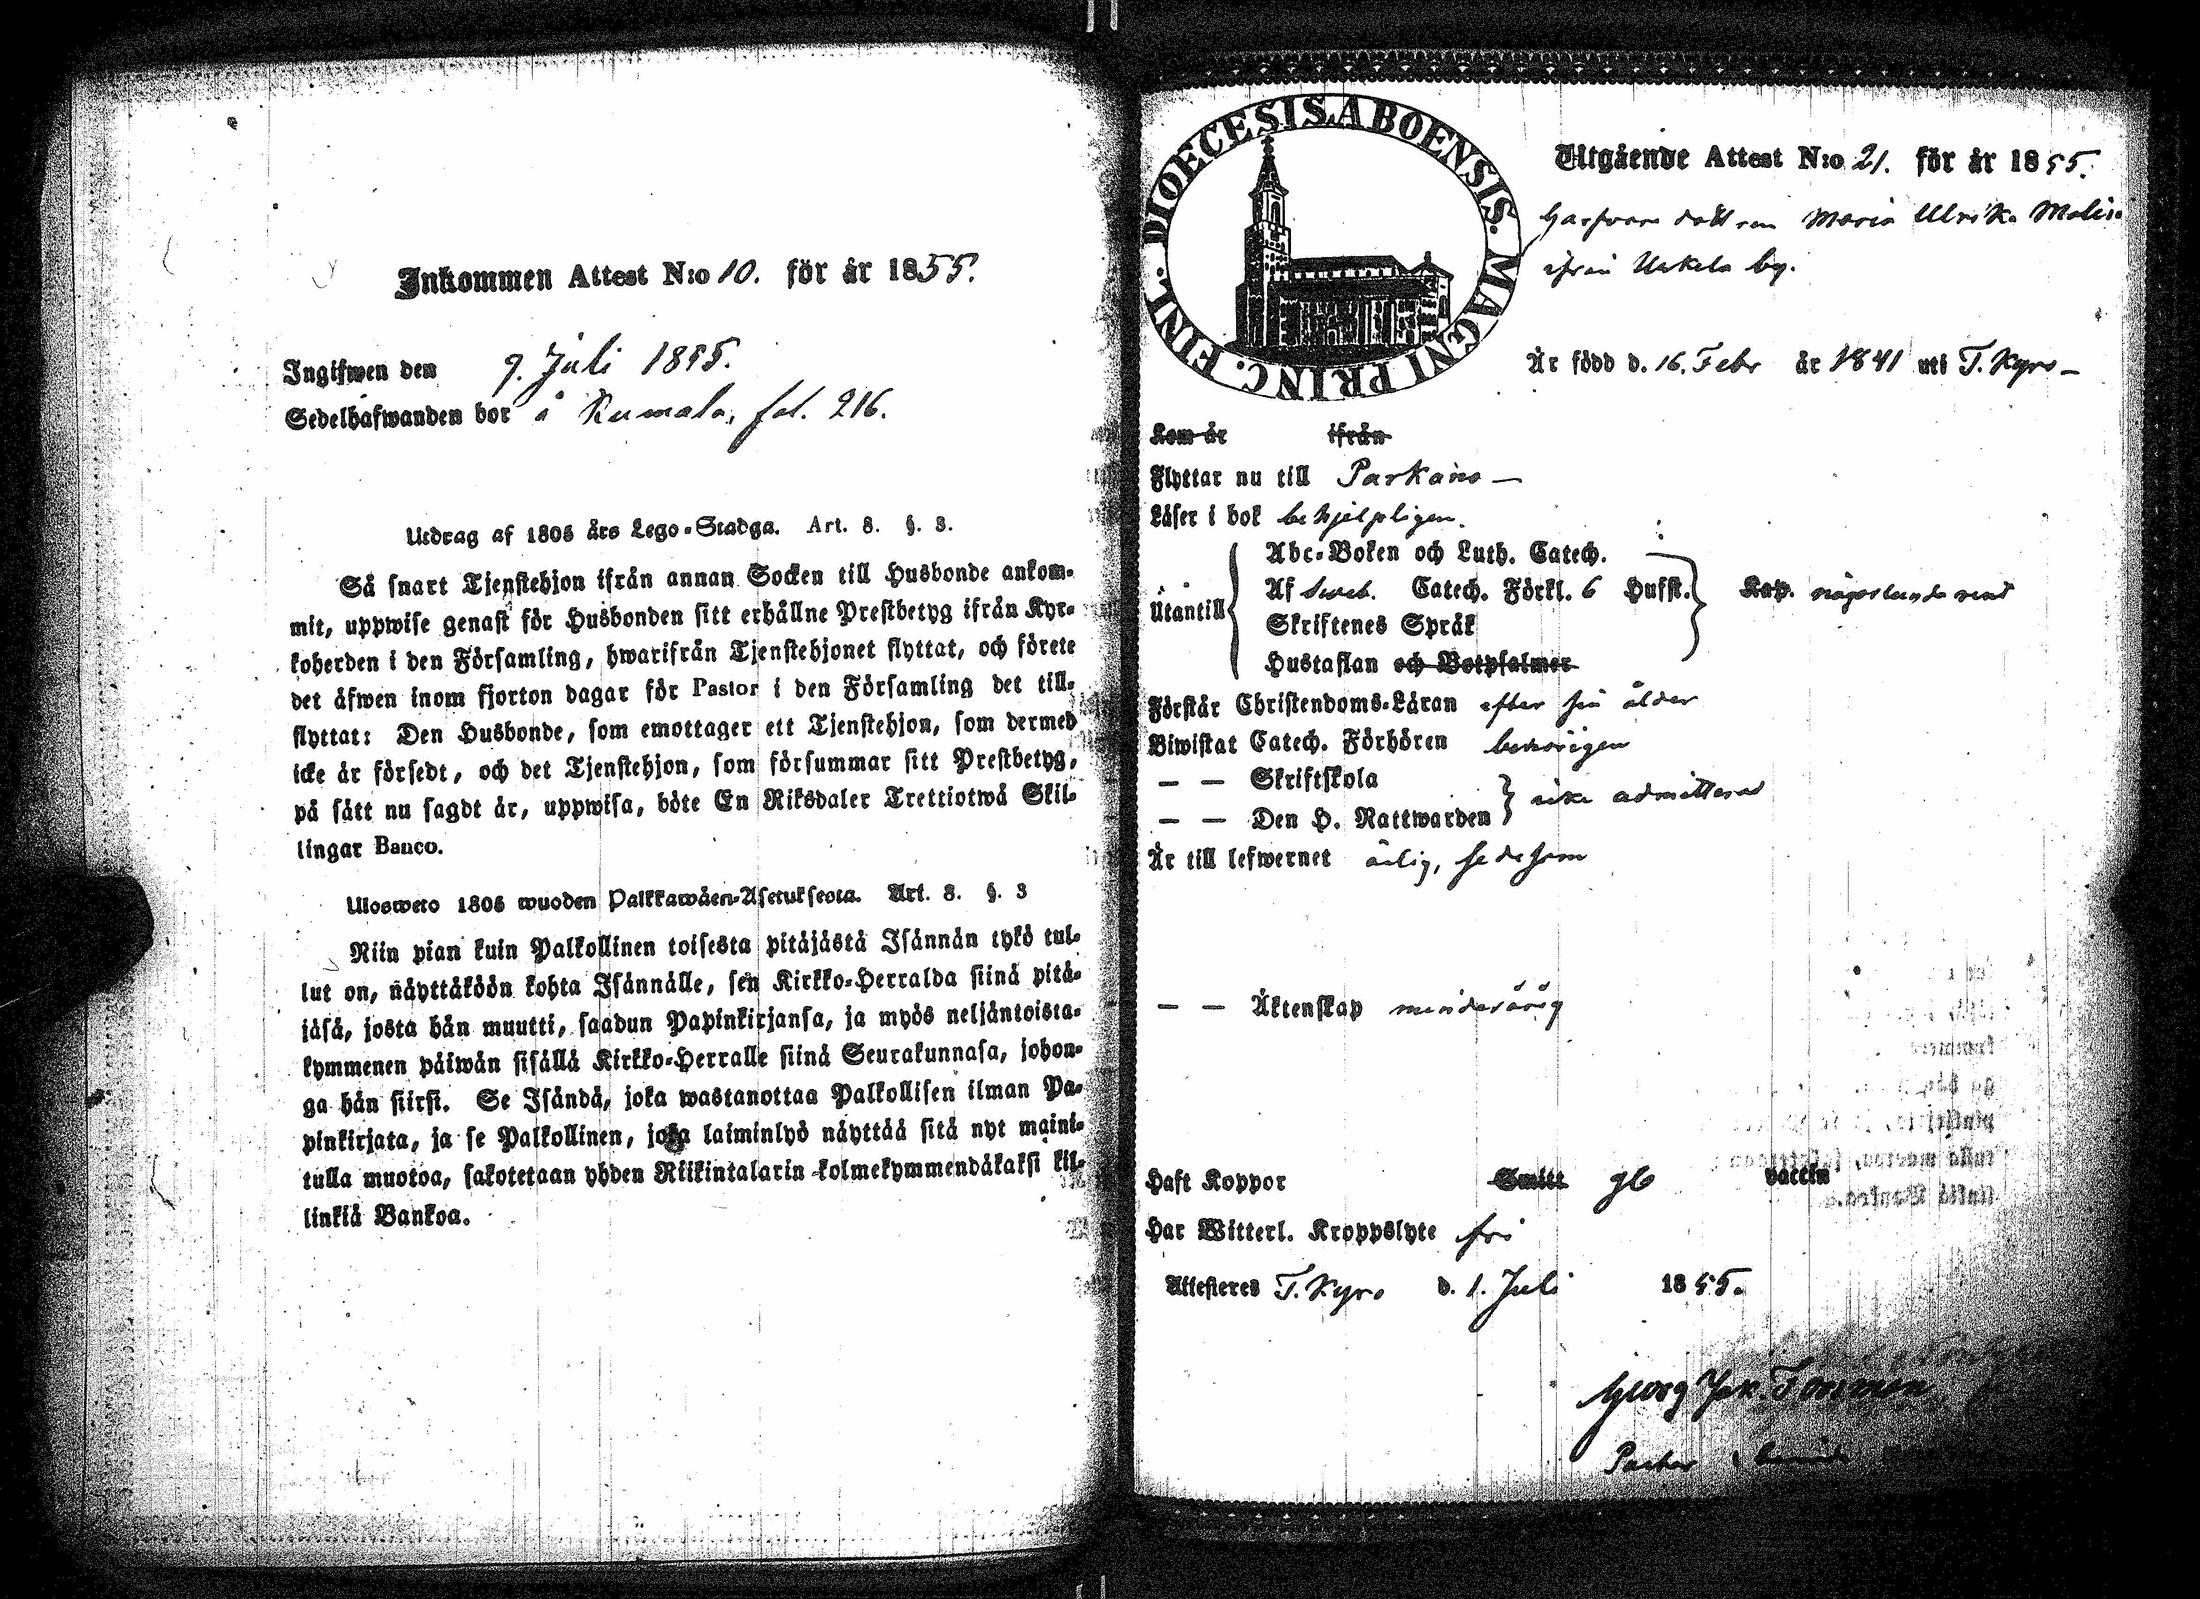 Inkommen Attest N:o 10. för år 1855.
Ingifwen den 9. Juli 1855.
Sedelhafwanden bor å Kumala, fol. 216.
Utdrag af 1805 års Lego-Stadga. Art. 8. §. 3.
Så snart Tjenstehjon ifrån annan Socken till Husbonde ankom-
mit, uppwise genast för Husbonden sitt erhållne Prestbetyg ifrån Kyr-
koherden i den Församling, hwarifrån Tjenstehjonet flyttat, och förete
det äfwen inom fjorton dagar för Pastor i den Församling det till-
flyttat: Den Husbonde, som emottager ett Tjenstehjon, som dermed
icke är försedt, och det Tjenstehjon, som försummar sitt Prestbetyg,
på sätt nu sagdt är, uppwisa, böte En Riksdaler Trettiotwå Skil-
lingar Banco.
Ulosweto 1805 wuoden Palkkawäen-Asetuksesta. Art. 8. §. 3
Niin pian kuin Palkollinen toisesta pitäjästä Isännän tykö tul-
lut on, näyttäköön kohta Isännälle, sen Kirkko-Herralda siinä pitä-
jäsä, josta hän muutti, saadun Papinkirjansa, ja myös neljäntoista-
kymmenen päiwän sisällä Kirkko-Herralle siinä Seurakunnasa, johon-
ga hän siirsi. Se Isändä, joka wastanottaa Palkollisen ilman Pa-
pinkirjata, ja se Palkollinen, joka laiminlyö näyttää sitä nyt maini-
tulla muotoa, sakotetaan yhden Riikintalarin kolmekymmendäkaksi kil-
linkiä Bankoa.
DIOECESIS ABOENSIS. MAGNI PRINC. FINL.
Utgående Attest N:o 21. för år 1855.
dottren Maria Ulrika
ifrån by.
Är född d. 16. Febr år 1841 uti T. Kyro
Kom år ifrån
Flyttar nu till Parkano
Läser i bok behjelpligen.
Abc-Boken och Luth. Catech.
Utantill Af Sweb. Catech. Förkl. 6 Hufst. Kap. någorlunda rent
Skriftenes Språk
Hustaflan och Botpsalmer
Förstår Christendoms-Läran efter sin ålder
Biwistat Catech. Förhören behörigen
— — Skriftskola
— — Den H. Nattwarden icke admitterad
Är till lefwernet ärlig, sedesam
— — Äktenskap minderårig
Haft Koppor Smitt gb vaccin
Har Witterl. Kroppslyte fri
Attesteres T. Kyro d. 1. Juli 1855.
Georg Jak.
Pastor